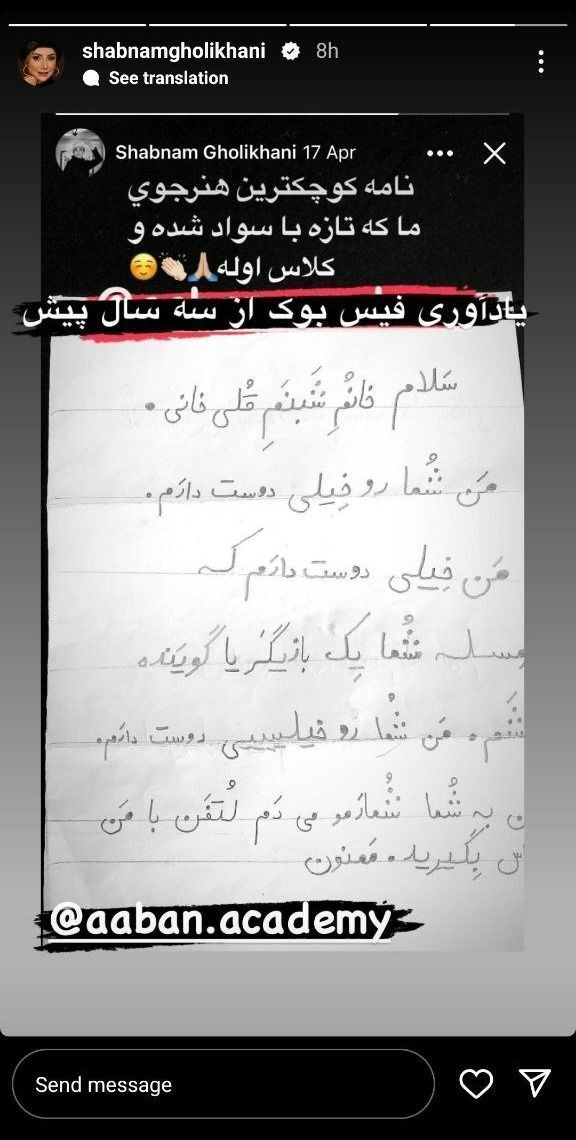 shabnamgholikhani 8h
See translation
Shabnam Gholikhani 17 Apr
نامه کوچکترین هنرجوي
ما که تازه با سواد شده و
کلاس اوله🙏🏻👏🏻☺️
یادآوری فیس بوک از سه سال پیش
سَلام خانُمِ شَبنَمِ قُلی خانی .
مَن شُما رو خِیلی دوست دارَم.
مَن خِیلی دوست دارَم کہ
مسلہ شُما یِک بازیگَر یا گویَنده
شَم. مَن شُما رو خیلیییی دوست دارَم.
بہ شُما شُمارَمو می دَم لُتفَن با مَن
بِگیرید. مَمنون
@aaban.academy
Send message